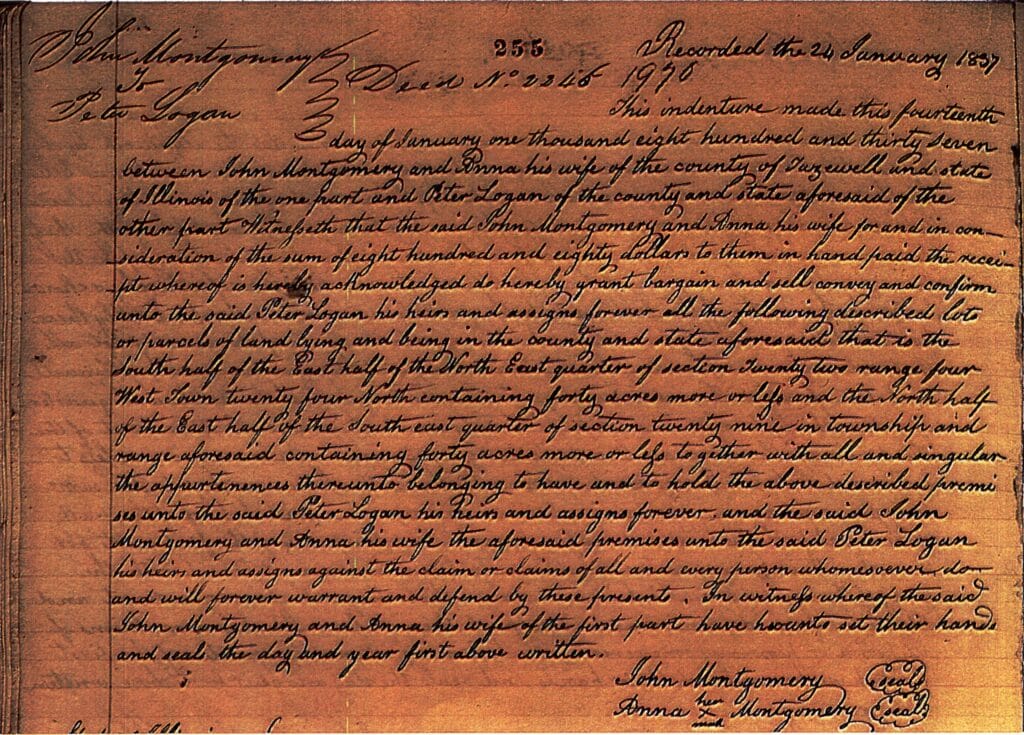 John Montgomery
To
Peter Logan
255
Deed No 2246 1970
Recorded the 24 January 1837
This indenture made this fourteenth
day of January one thousand eight hundred and thirty seven
between John Montgomery and Anna his wife of the county of Tazewell and state
of Illinois of the one part and Peter Logan of the county and state aforesaid of the
other part Witnesseth that the said John Montgomery and Anna his wife for and in con-
sideration of the sum of eight hundred and eighty dollars to them in hand paid the recei-
pt whereof is hereby acknowledged do hereby grant bargain and sell convey and confirm
unto the said Peter Logan his heirs and assigns forever all the following described lots
or parcels of land lying and being in the county and state aforesaid that is the
South half of the East half of the North East quarter of section Twenty two range four
West Town twenty four North containing forty acres more or less and the North half
of the East half of the South east quarter of section twenty nine in township and
range aforesaid containing forty acres more or less to gether with all and singular
the appurtenences thereunto belonging to have and to hold the above described premi
ses unto the said Peter Logan his heirs and assigns forever, and the said John
Montgomery and Anna his wife the aforesaid premises unto the said Peter Logan
his heirs and assigns against the claim or claims of all and every person whomesoever do
and will forever warrant and defend by these presents. In witness whereof the said
John Montgomery and Anna his wife of the first part have hereunto set their hands
and seals the day and year first above written.
John Montgomery (seal)
Anna her x mark Montgomery (seal)